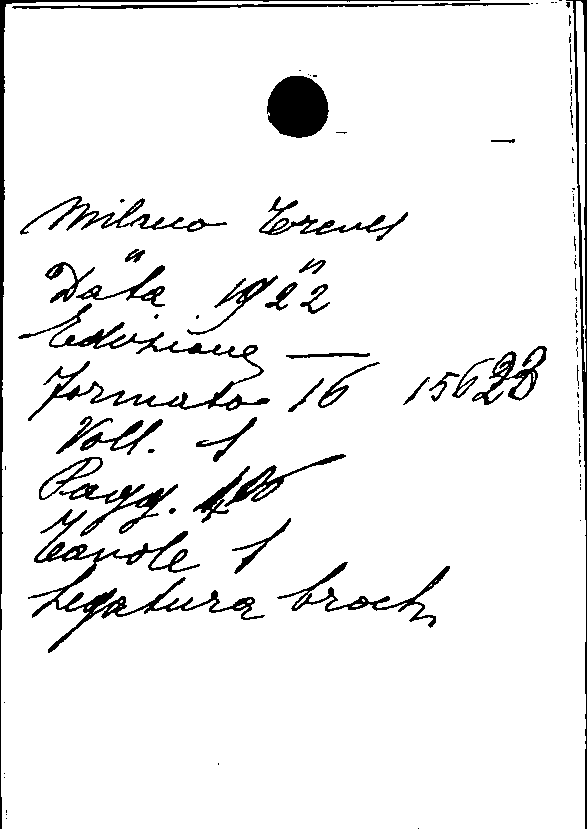 Milano Treves
" "
Data 1922
Edizione —
Formato 16 15623
Voll. 1
Pagg.
Tavole 1
Legatura broch.